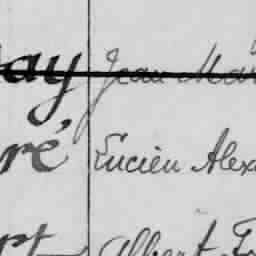 ay Jean Ma
ré Lucien Alex
rt Albert Fr